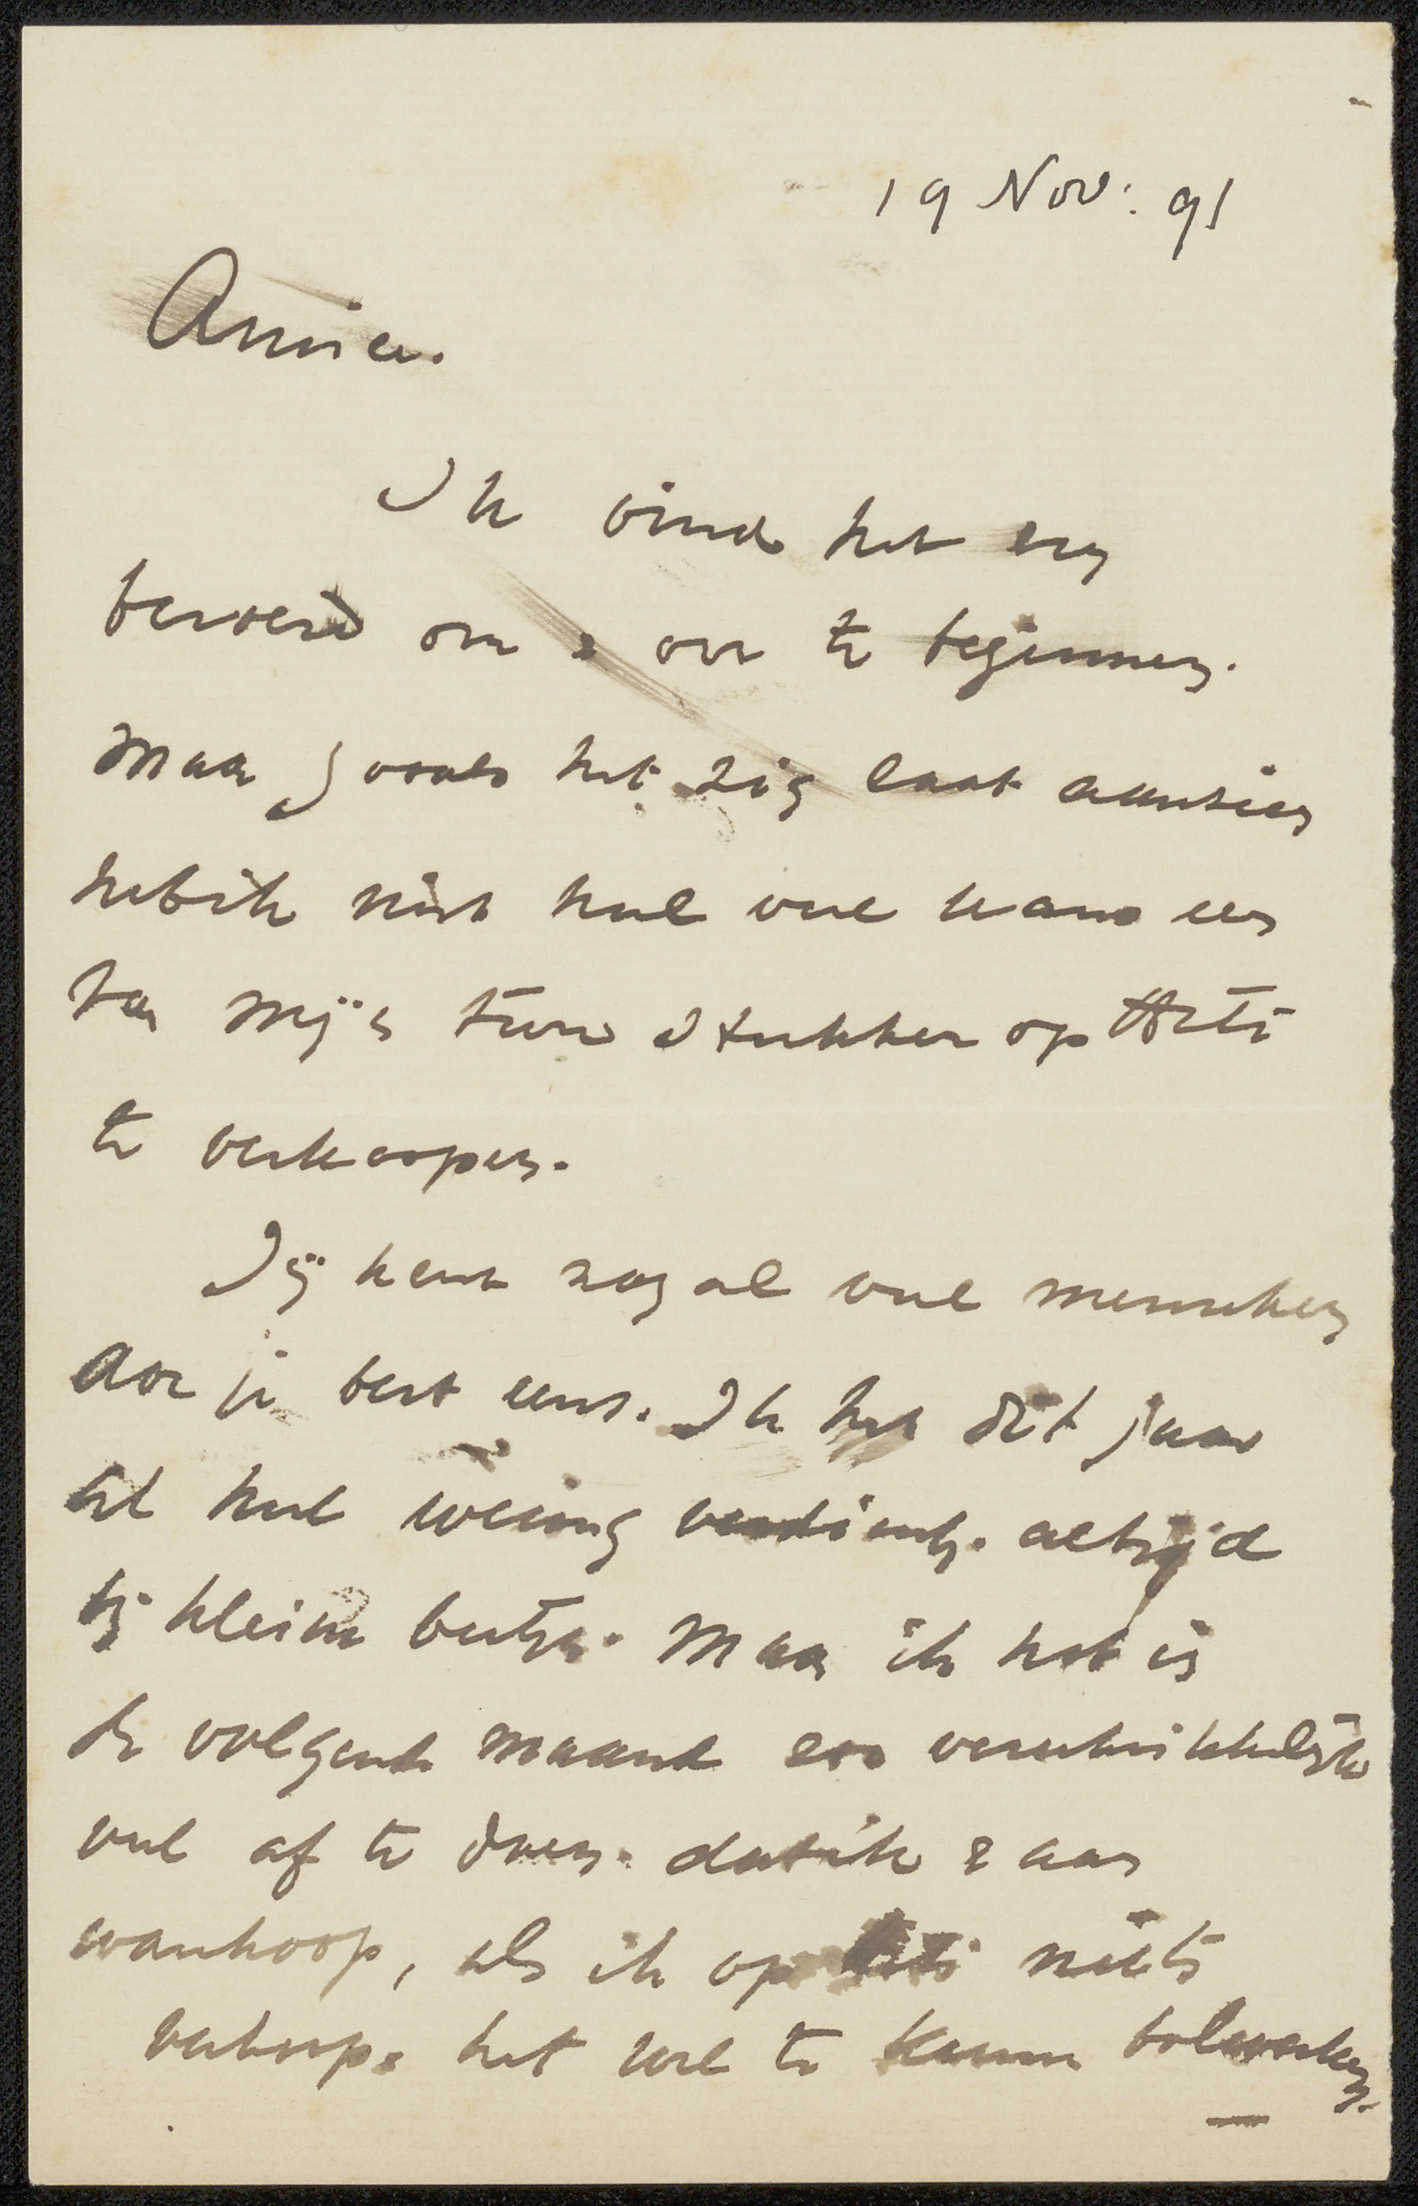 19 Nov: 91
Amice.
Ik vind het erg
beroerd om er over te beginnen.
Maar zooals het zig laat aanzien
heb ik niet heel veel kans een
van mijn twee stukken op Arti
te verkoopen.
Jij kent nog al veel menschen
doe je best eens. Ik heb dit jaar
tot heel weinig verdient. altijd
bij kleine beetjes. Maar ik heb in
de volgende maand zoo verschrikkelijk
veel af te doen. dat ik er aan
wanhoop, als ik op Arti niets
verkoop. het wel te kunnen bolwerken.